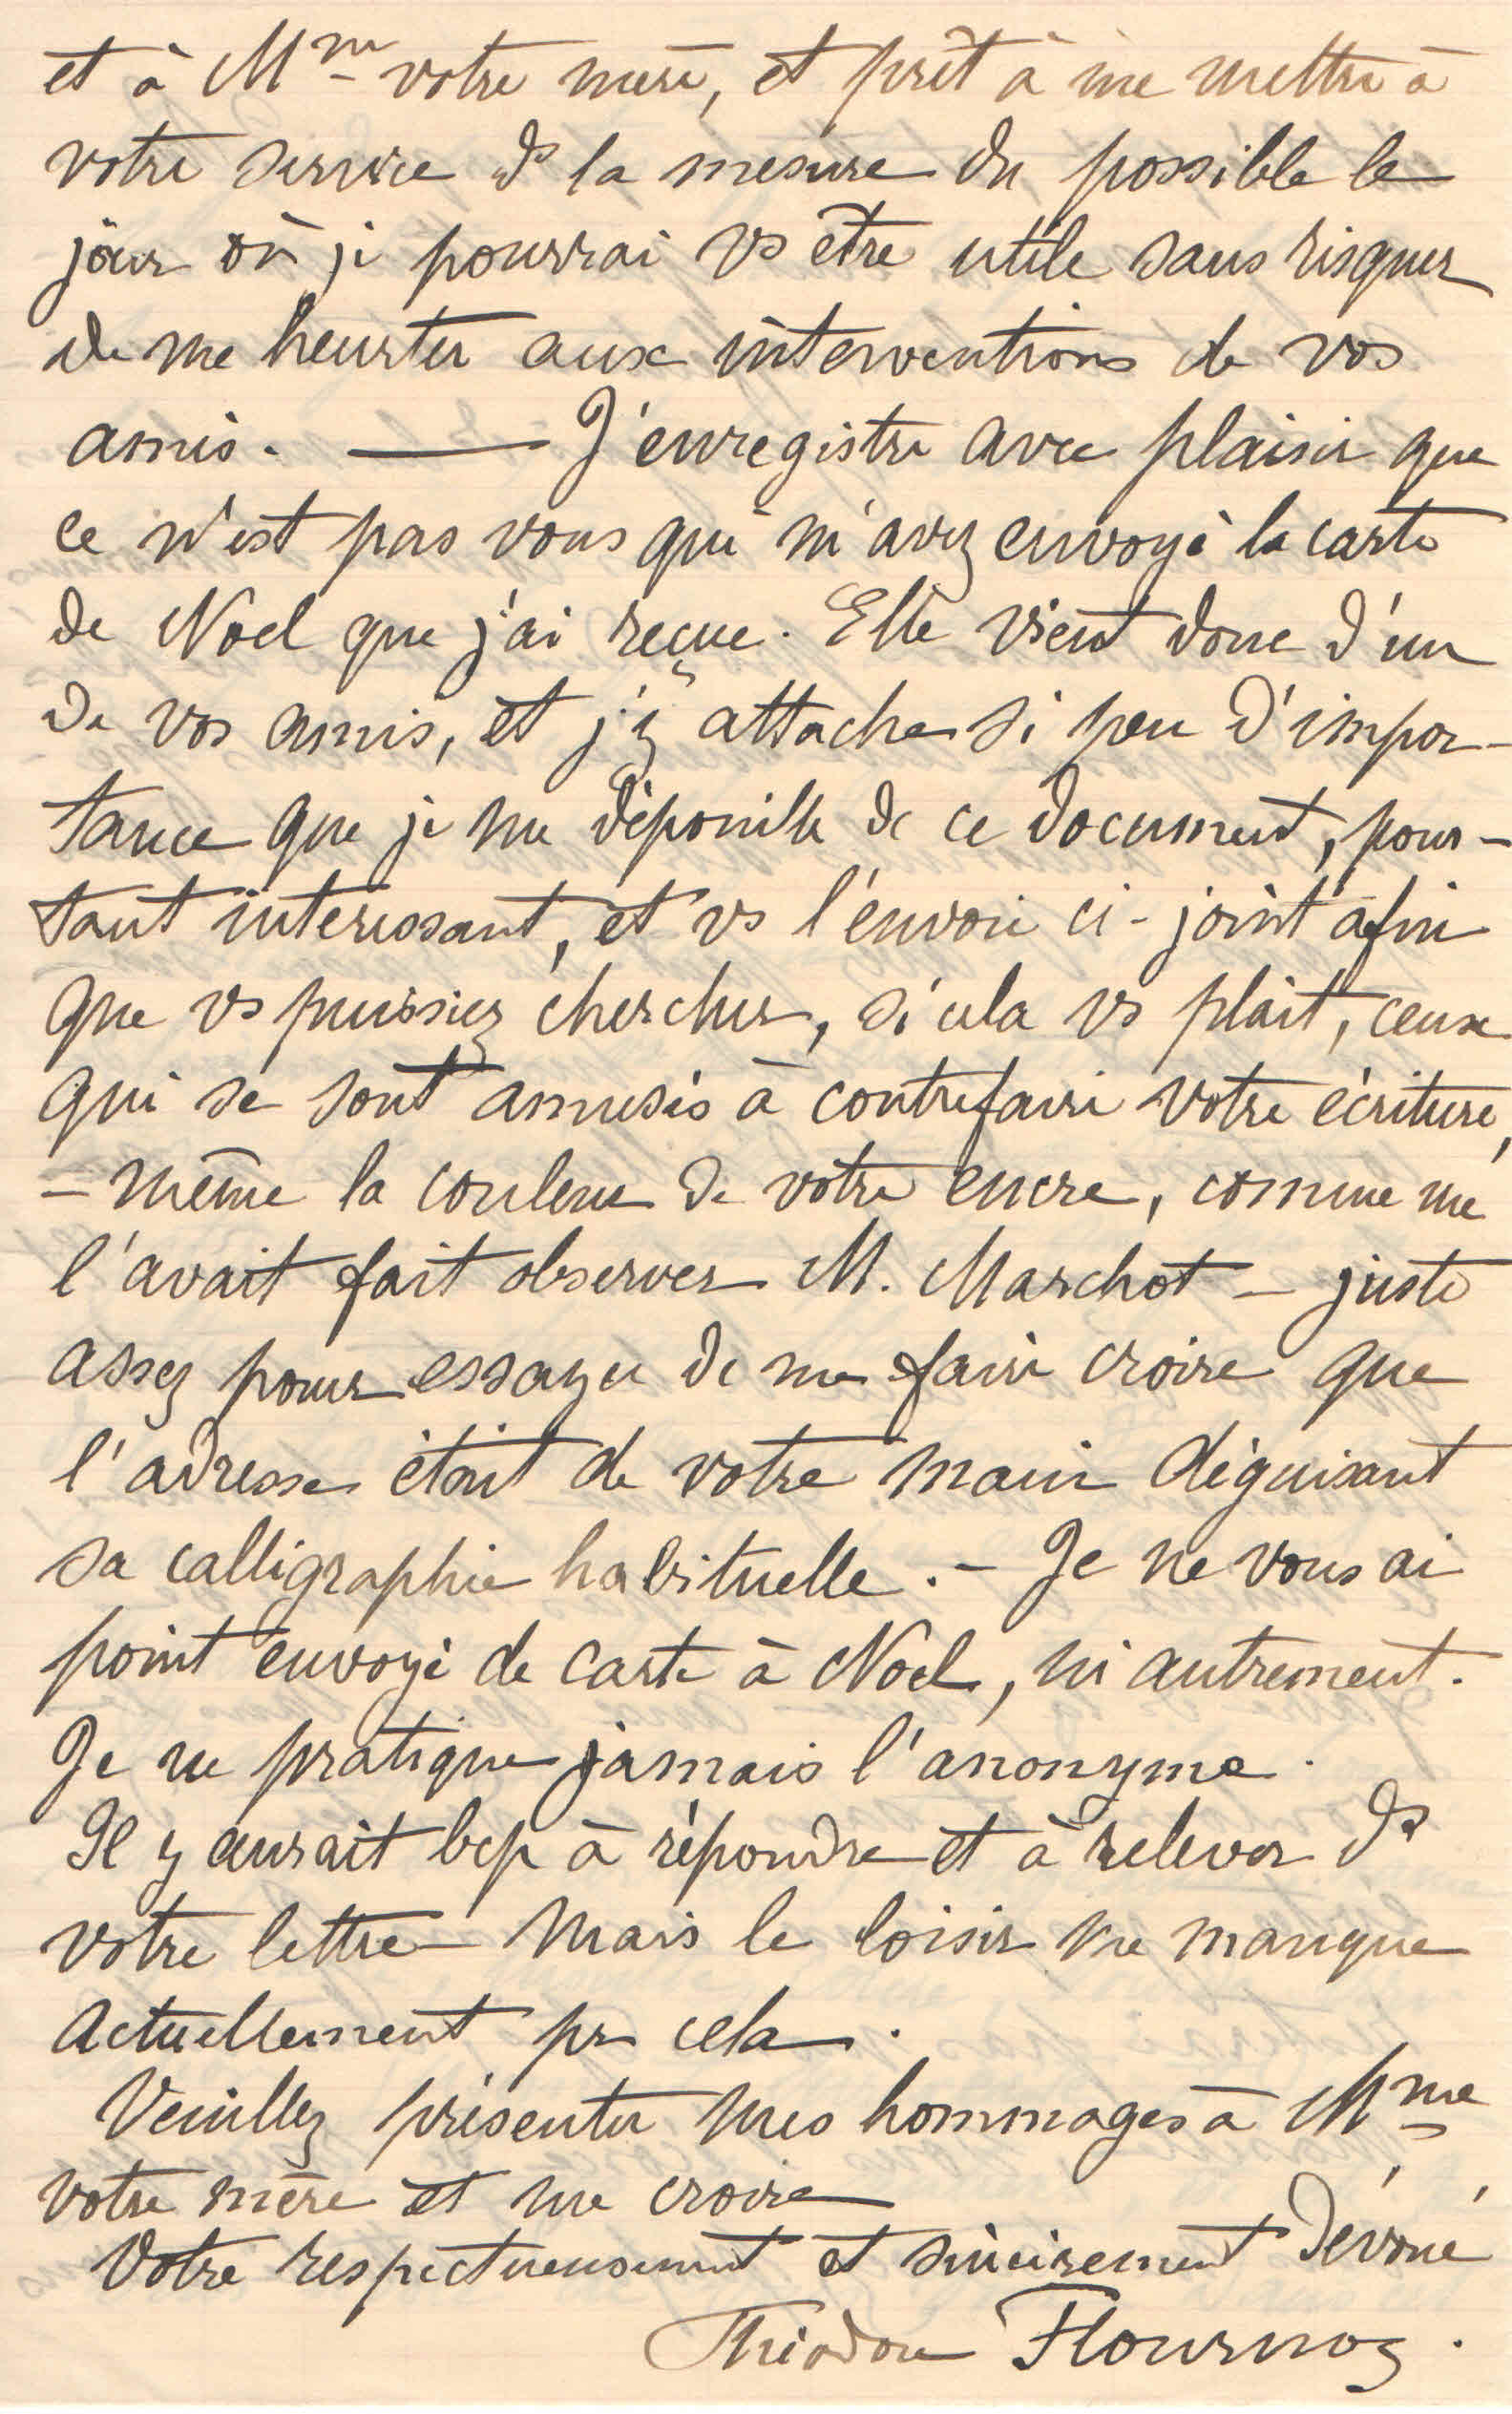 et à Mme votre mère, et prêt à me mettre à
votre service ds la mesure du possible le
jour où je pourrai vs être utile sans risquer
de me heurter aux interventions de vos
amis. — J'enregistre avec plaisir que
ce n'est pas vous qui m'avez envoyé la carte
de Noel que j'ai reçue. Elle vient donc d'un
de vos amis, et j'y attache si peu d'impor-
tance que je me dépouille de ce document, pour-
tant intéressant, et vs l'envoie ci-joint afin
que vs puissiez chercher, si cela vs plait, ceux
qui se sont amusés à contrefaire votre écriture,
– même la couleur de votre encre, comme me
l'avait fait observer M. Marchot – juste
assez pour essayer de me faire croire que
l'adresse était de votre main déguisant
sa calligraphie habituelle. – Je ne vous ai
point envoyé de carte à Noel, ni autrement.
Je ne pratique jamais l'anonyme.
Il y aurait bcp à répondre et à relever ds
votre lettre – mais le loisir me manque
actuellement pr cela.
Veuillez présenter mes hommages à Mme
votre mère et me croire
Votre respectueusement et sincèrement dévoué
Théodore Flournoy.